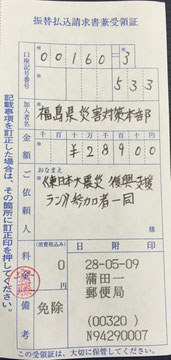 振替払込請求書兼受領証
口座記号番号
00160 3
533
加入者名
福島県災害対策本部
金額
千 百 十 万 千 百 十 円
¥28900
ご依頼人
おなまえ
《東日本大震災 復興支援
ラン》参加者一同
料金
(消費税込み)
0
円
備考
免除
日附印
28-05-09
蒲田一
郵便局
(00320)
N94290007
記載事項を訂正した場合は、その箇所に訂正印を押してください。
この受領証は、大切に保管してください。